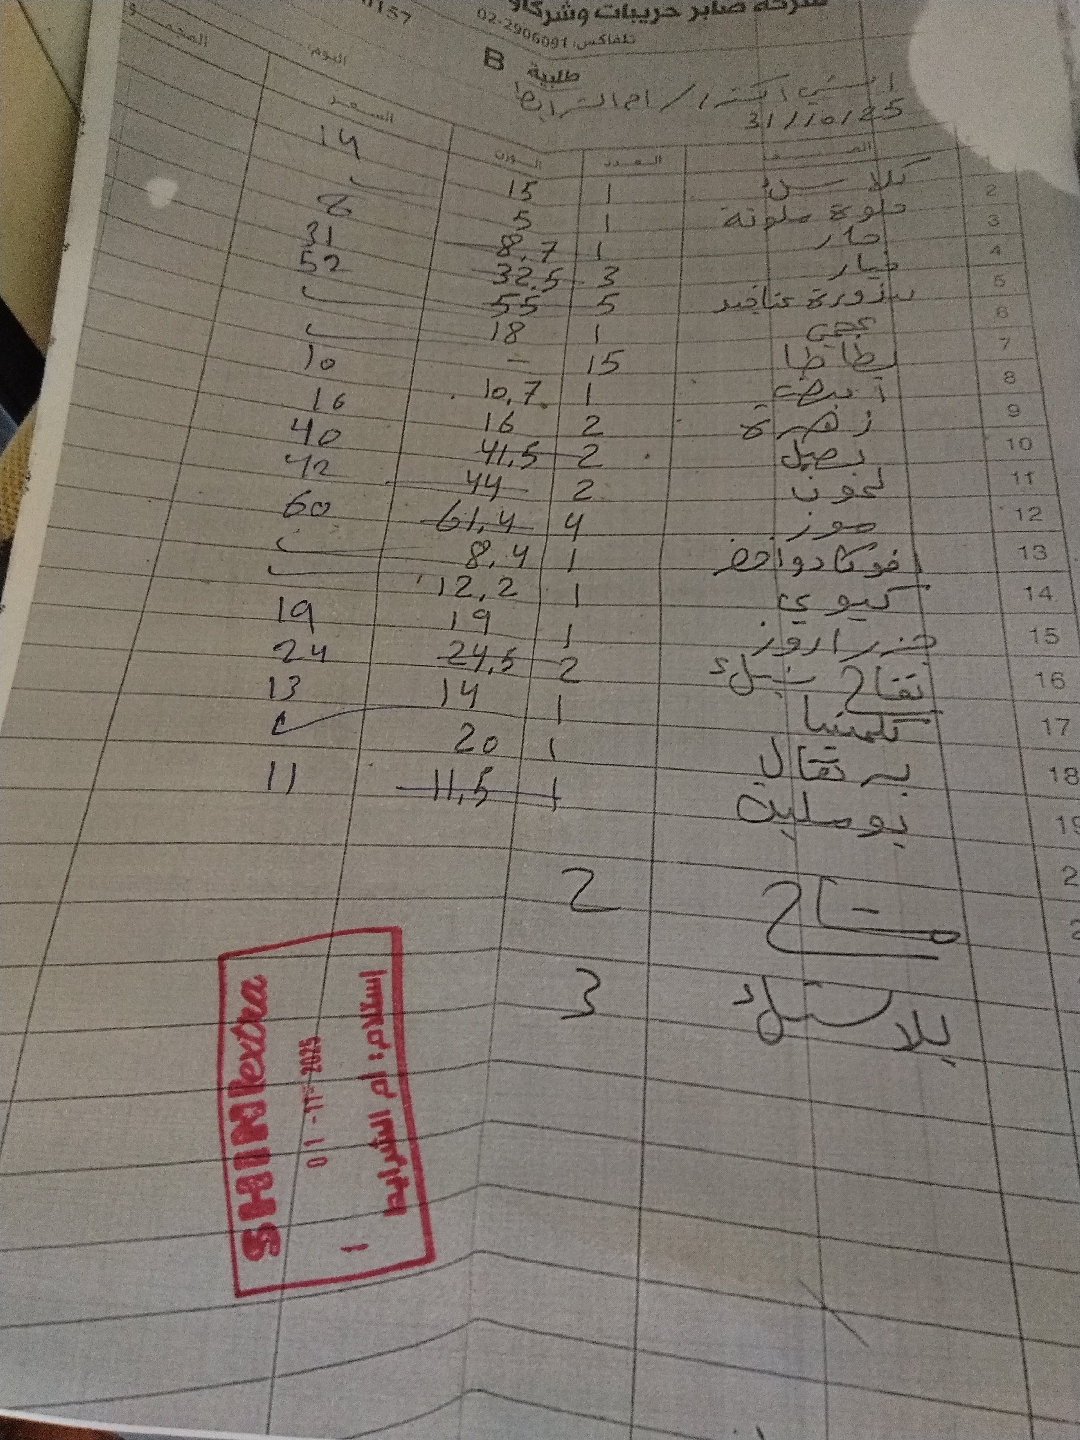 شركة صابر حريبات وشركاؤه
1157
تلفاكس: 02-2906091
طلبية B
اليوم:
ام الشرايط
31/10/25
الصنف العدد الوزن السعر
1 15 14
2 حلوة ملونة 1 5
3 حار 1 8,7 8
4 خيار 3 32.5 31
5 بندورة عناقيد 5 55 52
6 عجمي 1 18
7 بطاطا 15 -
8 ابيض 1 10,7 10
9 زهرة 2 16 16
10 بصل 2 41,5 40
11 ليمون 2 44 42
12 موز 4 61,4 60
13 افوكادو اخضر 1 8,4
14 كيوي 1 12,2
15 جزر اروز 1 19 19
16 تفاح 2 24,5 24
17 كلمنتينا 1 14 13
18 برتقال 1 20
19 بوملية 1 11,5 11
مشتاح 2
بلاستيك 3
SHINI extra
01-11-2025
استلام: ام الشرايط
1